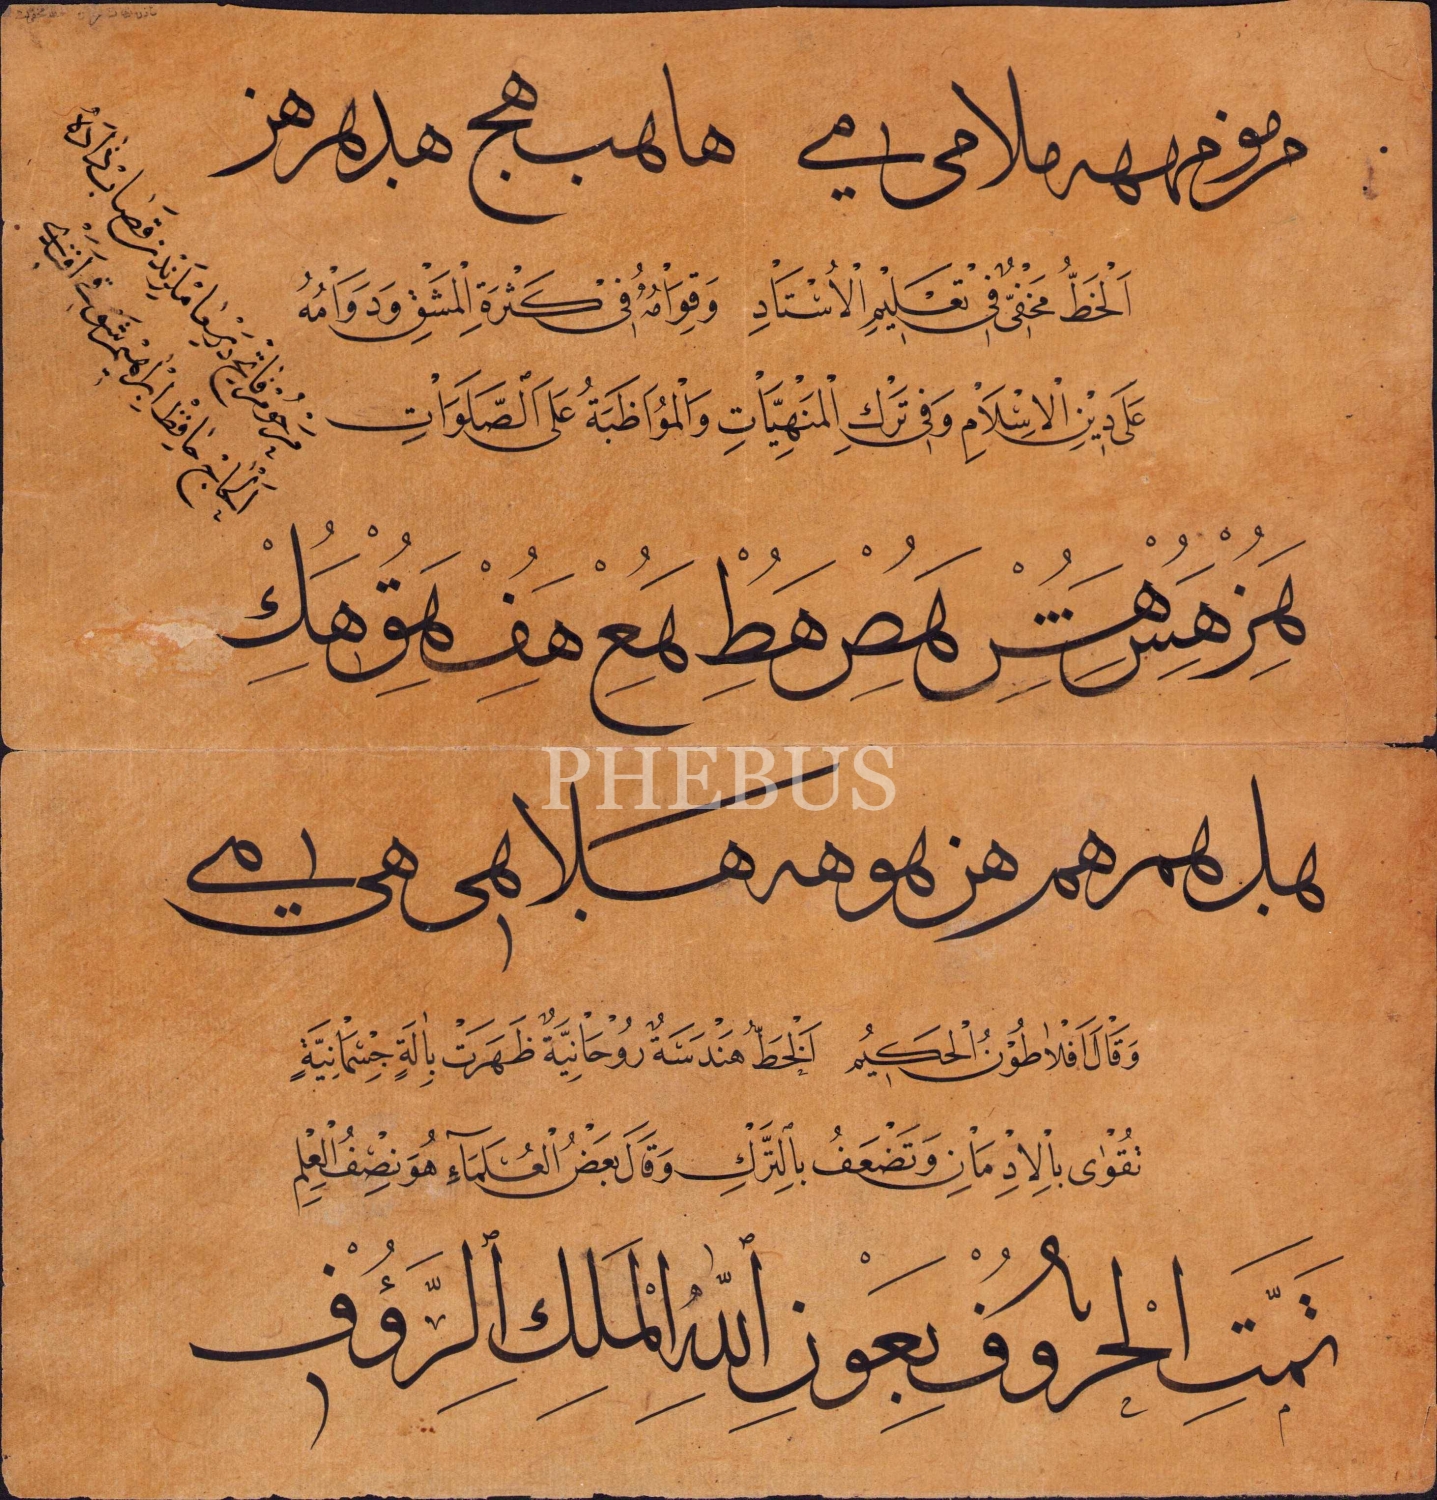 مر مو م مهمه ملا می مے ها هب هج هد هر هز
اَلْخَطُّ مَخْفِیٌّ فِیْ تَعْلِيْمِ الْاُسْتَاْدِ وَقِوَاْمُهُ فِیْ كَثْرَةِ الْمَشْقِ وَدَوَاْمُهُ
عَلَی دِيْنِ الْاِسْلَاْمِ وَفِی تَرْكِ الْمَنْهِيَّاْتِ وَالْمُوَاظَبَةُ عَلَی الصَّلَوَاْتِ
هز هس هش هص هط هع هف هق هك
هل هم هم هن هو هه هلا هی هی مے
وَقَالَ اَفْلَاطُوْنُ الْحَكِيْمُ اَلْخَطُّ هَنْدَسَةٌ رُوْحَاْنِيَّةٌ ظَهَرَتْ بِاٰلَةٍ جِسْمَاْنِيَّةٍ
تُقْوٰی بِالْاِدْمَاْنِ وَتَضْعَفُ بِالتَّرْكِ وَقَالَ بَعْضُ الْعُلَمَآءِ هُوَ نِصْفُ الْعِلْمِ
تَمَّتِ الْحُرُوْفُ بِعَوْنِ اللّٰهِ الْمَلِكِ الرَّؤُفْ
PHEBUS